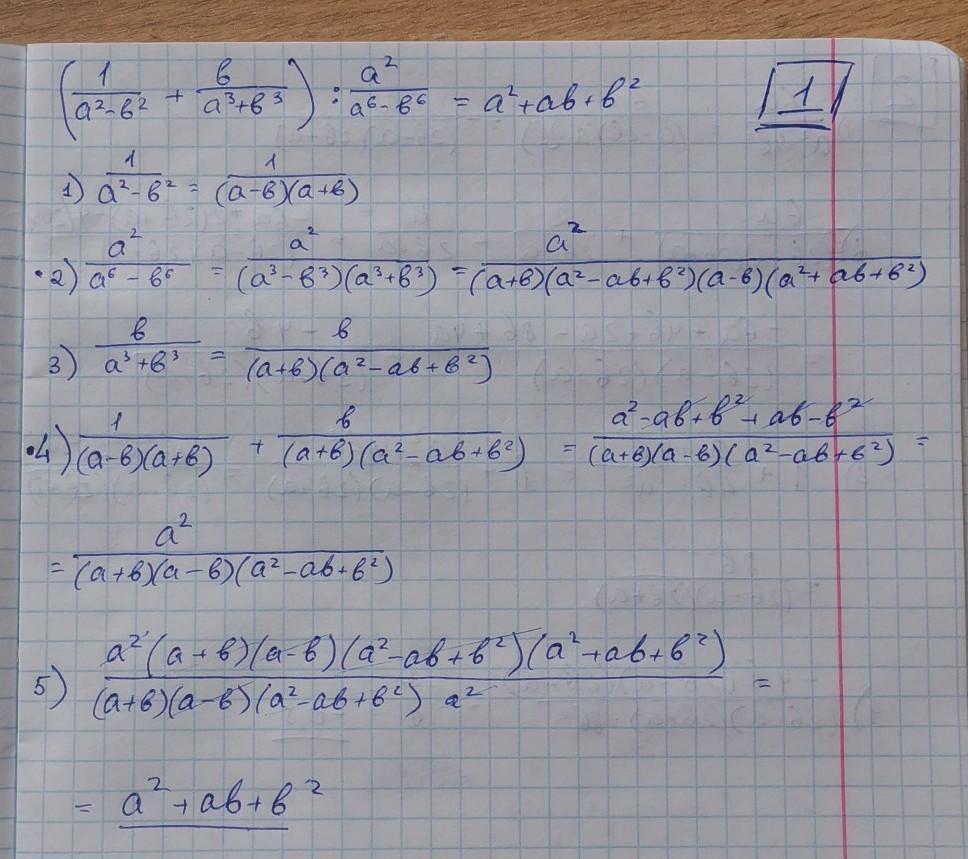 (1/(a²-в²) + в/(a³+в³)) : a²/(a⁶-в⁶) = a²+aв+в²
1
1) 1/(a²-в²) = 1/((a-в)(a+в))
·2) a²/(a⁶-в⁶) = a²/((a³-в³)(a³+в³)) = a²/((a+в)(a²-aв+в²)(a-в)(a²+aв+в²))
3) в/(a³+в³) = в/((a+в)(a²-aв+в²))
·4) 1/((a-в)(a+в)) + в/((a+в)(a²-aв+в²)) = (a²-aв+в²+aв-в²)/((a+в)(a-в)(a²-aв+в²)) =
= a²/((a+в)(a-в)(a²-aв+в²))
5) (a²(a+в)(a-в)(a²-aв+в²)(a²+aв+в²))/((a+в)(a-в)(a²-aв+в²) a²) =
= a²+aв+в²